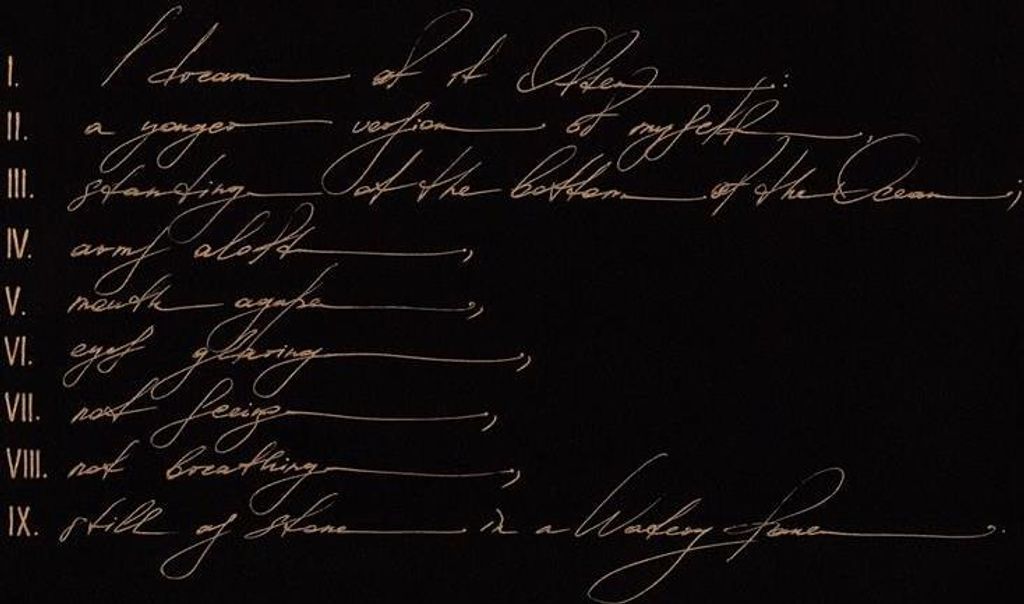 I. I dream of it Often:
II. a younger version of myself,
III. standing at the bottom of the Ocean;
IV. arms aloft,
V. mouth agape,
VI. eyes glaring,
VII. not seeing,
VIII. not breathing,
IX. still as stone in a Watery Fane.